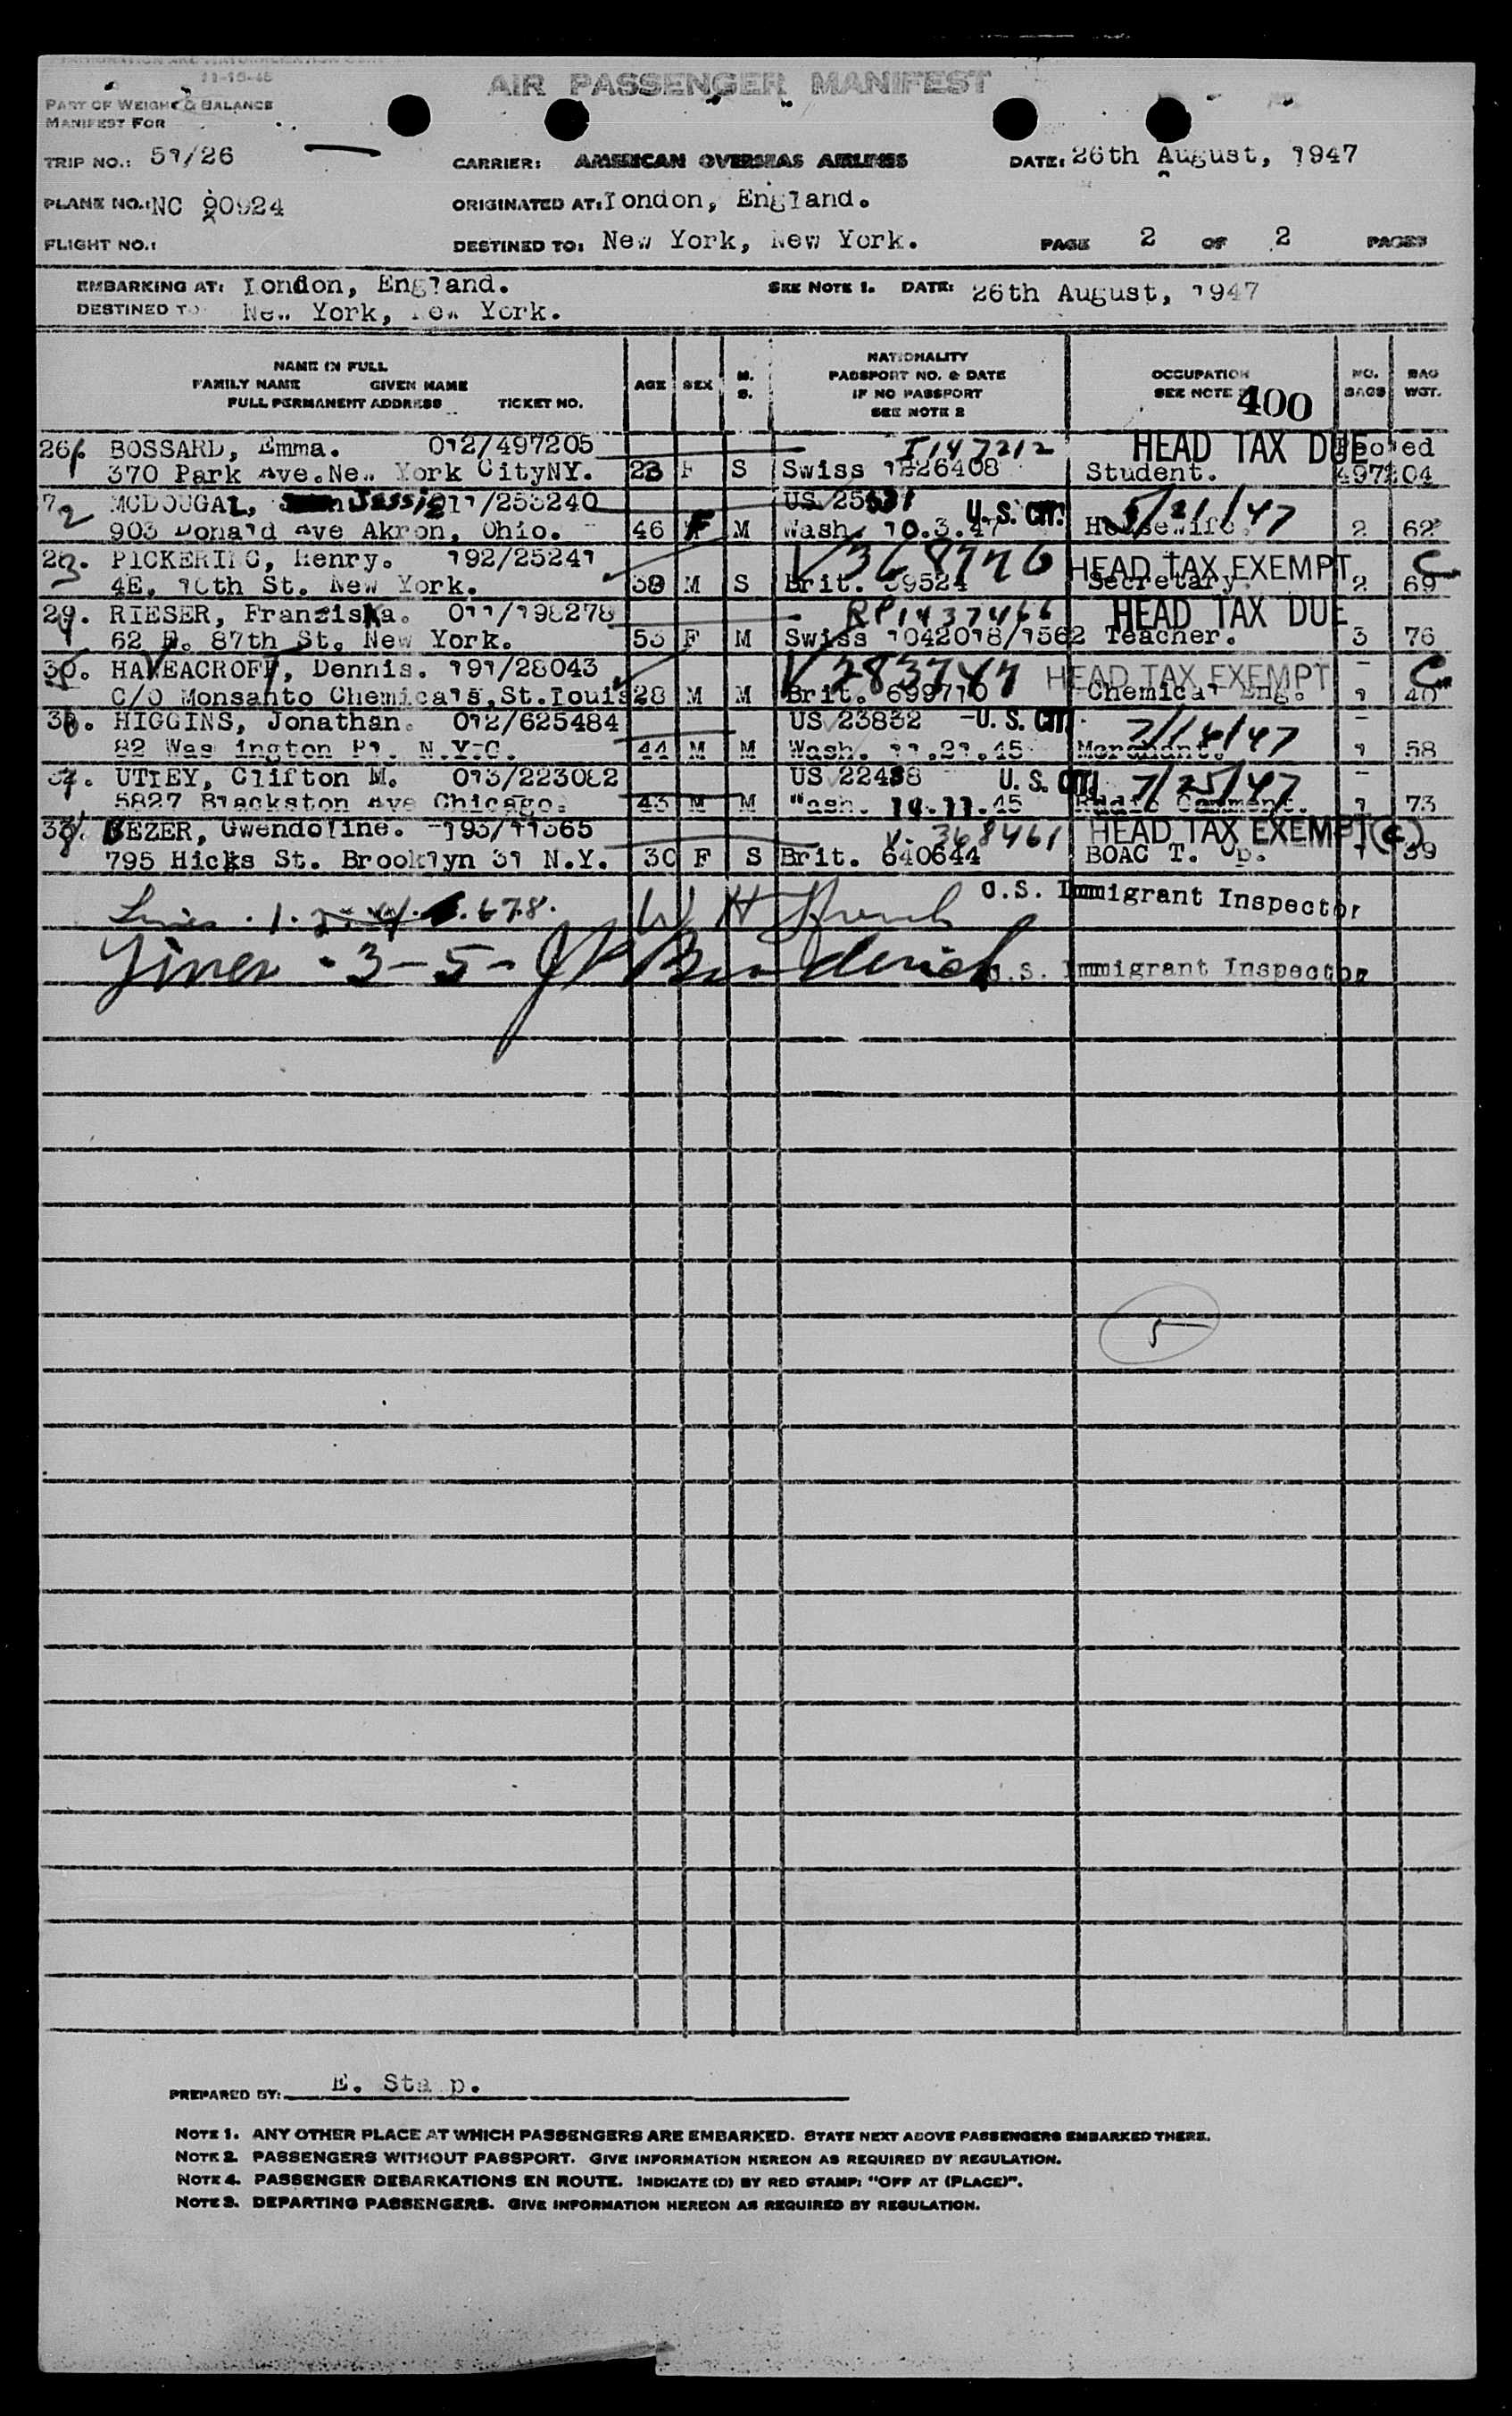 11-15-45
AIR PASSENGER MANIFEST
PART OF WEIGHT & BALANCE
MANIFEST FOR
TRIP NO.: 51/26 CARRIER: AMERICAN OVERSEAS AIRLINES DATE: 26th August, 1947
PLANE NO.: NC 90924 ORIGINATED AT: London, England.
FLIGHT NO.: DESTINED TO: New York, New York. PAGE 2 OF 2 PAGES
EMBARKING AT: London, England. SEE NOTE 1. DATE: 26th August, 1947
DESTINED TO New York, New York.
NAME IN FULL
FAMILY NAME GIVEN NAME
FULL PERMANENT ADDRESS TICKET NO.
AGE SEX M. S.
NATIONALITY
PASSPORT NO. & DATE
IF NO PASSPORT
SEE NOTE 2
OCCUPATION
SEE NOTE 400
NO. BAGS BAG WGT.
26. BOSSARD, Emma. 012/497205 I147212 HEAD TAX DUE
370 Park Ave. New York CityNY. 23 F S Swiss 1226408 Student. 497204
7 2 MCDOUGAL, Jessie 011/253240 US U.S. CIT. 5/21/47
903 Donald Ave Akron, Ohio. 46 F M Wash. 10.3.47 Housewife. 2 62
28. 3 PICKERING, Henry. 192/25241 V368996 HEAD TAX EXEMPT C
4E, 10th St. New York. 38 M S Brit. 39524 Secretary. 2 69
29. 4 RIESER, Franziska. 011/198278 RP1437466 HEAD TAX DUE
62 E. 87th St. New York. 53 F M Swiss 1042018/1562 Teacher. 3 76
30. 5 HAVEACROFT, Dennis. 191/28043 V283747 HEAD TAX EXEMPT C
C/O Monsanto Chemicals, St. Louis 28 M M Brit. 699710 Chemical Eng. 1 40
HIGGINS, Jonathan. 012/625484 US 23832 -U.S. CIT. 7/16/47
82 Washington Pl. N.Y.C. 44 M M Wash. 11.21.45 Merchant. 1 58
UTLEY, Clifton M. 013/223082 US 22438 U.S. CIT. 7/25/47
5827 Blackston Ave Chicago. 43 M M Wash. 14.11.45 Radio Comment. 1 73
33. 8 BEZER, Gwendoline. 193/11365 V-368461 HEAD TAX EXEMPT (C)
795 Hicks St. Brooklyn 31 N.Y. 30 F S Brit. 640644 BOAC T. Op. 1 39
Lines 1. 2. 4. 6.7.8. W H U.S. Immigrant Inspector
Lines - 3 - 5 - Broderick U.S. Immigrant Inspector
5
PREPARED BY: E. Sta p.
NOTE 1. ANY OTHER PLACE AT WHICH PASSENGERS ARE EMBARKED. STATE NEXT ABOVE PASSENGERS EMBARKED THERE.
NOTE 2. PASSENGERS WITHOUT PASSPORT. GIVE INFORMATION HEREON AS REQUIRED BY REGULATION.
NOTE 4. PASSENGER DEBARKATIONS EN ROUTE. INDICATE (D) BY RED STAMP: "OFF AT (PLACE)".
NOTE 3. DEPARTING PASSENGERS. GIVE INFORMATION HEREON AS REQUIRED BY REGULATION.